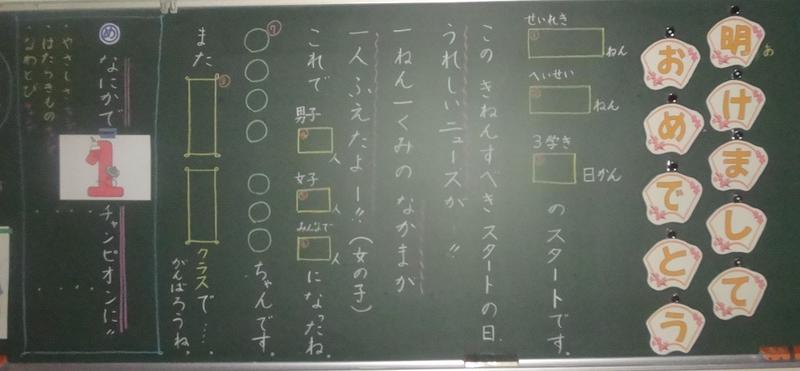 明けまして
あ
おめでとう
せいれき ① ねん
へいせい ② ねん
3学き ③ 日かん
のスタートです。
この きねんすべき スタートの日
うれしいニュースが…!!
一ねん一くみの なかまが
一人 ふえたよー!!(女の子)
これで
男子 人
女子 人
みんなで 人
になったね。
⑦ ○○○○ ○○○ちゃんです。
また
クラスで…
がんばろうね。
め なにかで 1 チャンピオンに!!
やさしさ
はたらきもの
なわとび